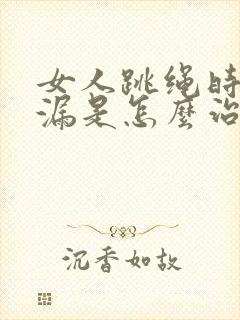 女人跳绳时
漏是怎麼治
沉香如故